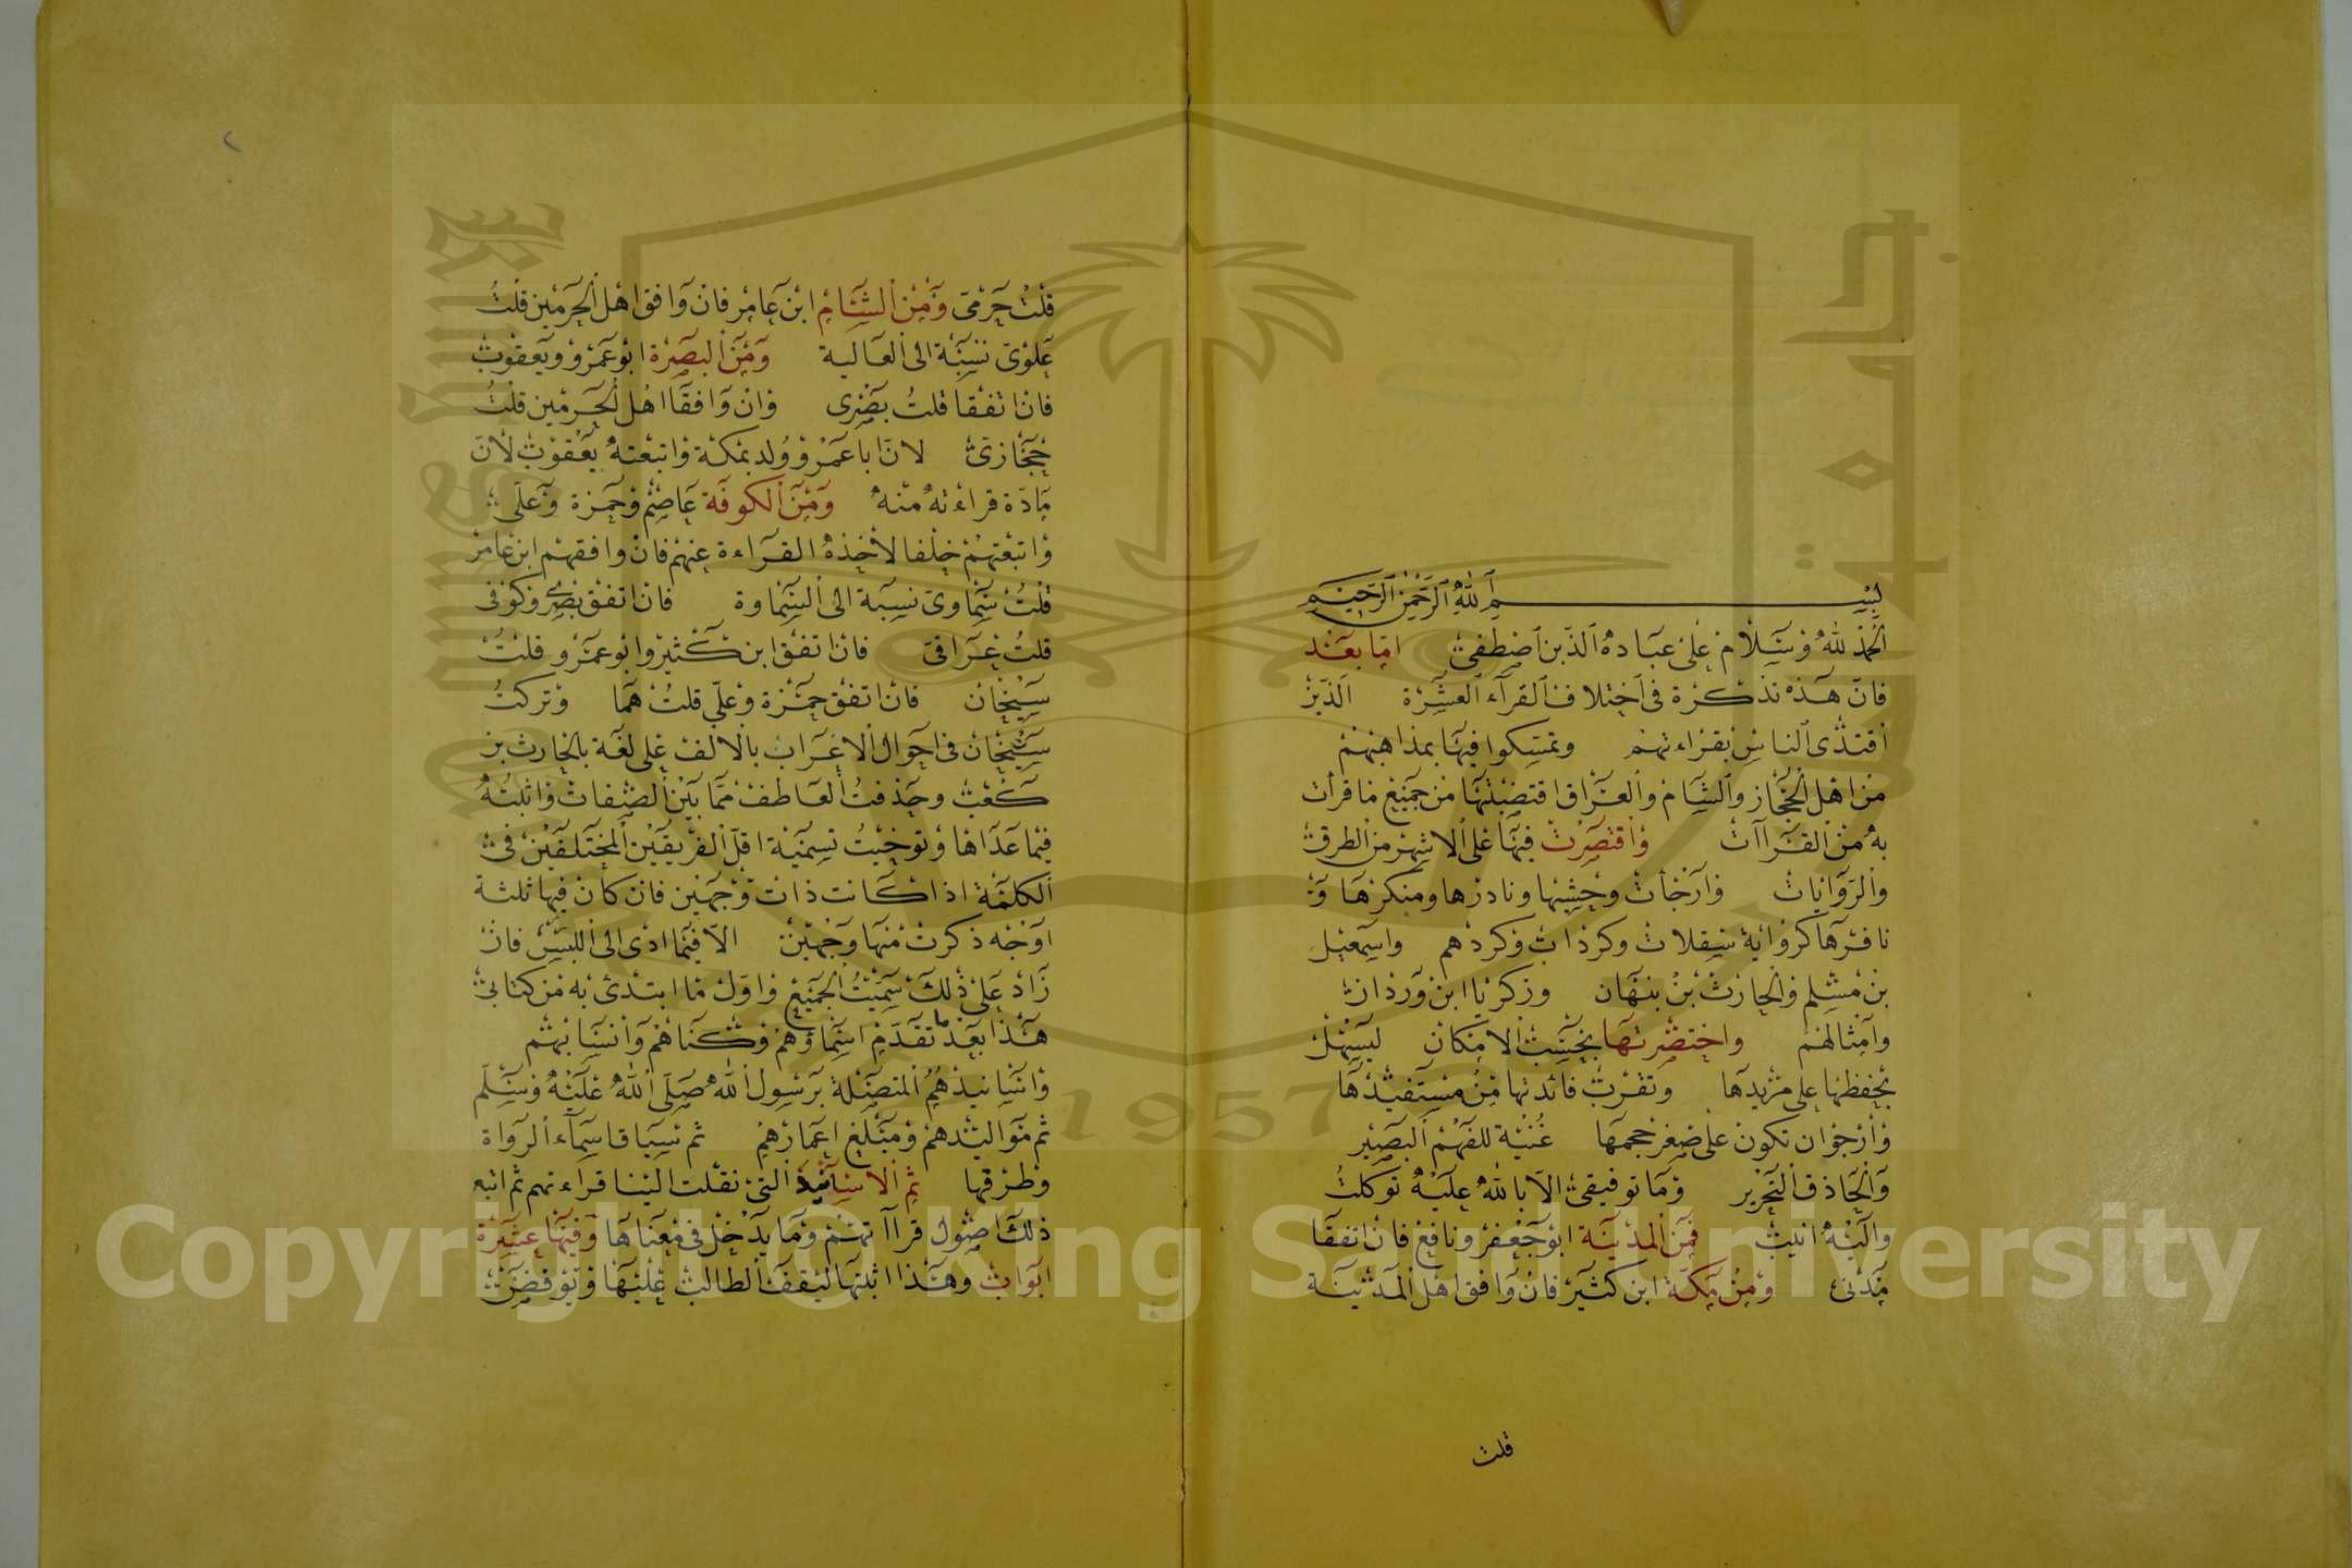 بسم الله الرحمن الرحيم
الحمد لله وسلام على عباده الذين اصطفى اما بعد
فان هذه تذكرة فى اختلاف القرآء العشرة الذين
اقتدى الناس بقراءتهم وتمسكوا فيها بمذاهبهم
من اهل الحجاز والشام والعراق اقتضبتها من جميع ما قرأت
به من القراآت واقتصرت فيها على الاشهر من الطرق
والروايات وارجأت وحشيها ونادرها ومنكرها و
نافرها كرواية سقلاب وكرداب وكردم واسمعيل
بن مسلم والحارث بن بنهان وزكريا ابن وردان
وامثالهم واختصرتها بحسب الامكان ليسهل
حفظها على مريدها وتقرب فائدتها من مستفيدها
وارجوان تكون على صغر حجمها غنية للفهم البصير
والحاذق النحرير وما توفيقى الا بالله عليه توكلت
واليه انيب فمن المدينة ابو جعفر ونافع فان اتفقا
مدنى ومن مكة ابن كثير فان وافق اهل المدينة
قلت
قلت حرمى ومن الشام ابن عامر فان وافق اهل الحرمين قلت
علوى نسبة الى العالية ومن البصرة ابو عمرو ويعقوب
فان اتفقا قلت بصرى وان وافقا اهل الحرمين قلت
حجازى لان ابا عمرو ولد بمكة واتبعته يعقوب لان
مادة قراءته منه ومن الكوفة عاصم وحمزة وعلى
واتبعتهم خلفا لاخذه القراءة عنهم فان وافقهم ابن عامر
قلت سماوى نسبة الى السماوة فان اتفق بصرى وكوفى
قلت عراقى فان اتفق ابن كثير وابو عمرو قلت
شيخان فان اتفق حمزة وعلى قلت هما وتركت
شيخان فى احوال الاعراب بالالف على لغة بالحارث بن
كعب وحذفت العاطف مما بين الصفات واثبته
فيما عداها وتوخيت تسمية اقل الفريقين المختلفين فى
الكلمة اذا كانت ذات وجهين فان كان فيها ثلثة
اوجه ذكرت منها وجهين الا فيما ادى الى اللبس فان
زاد على ذلك سميت الجميع واول ما ابتدئ به من كتابى
هذا بعد ما تقدم اسماؤهم وكناهم وانسابهم
واسانيدهم المتصلة برسول الله صلى الله عليه وسلم
ثم مواليدهم ومبلغ اعمارهم ثم نسياق اسمآء الرواة
وطرقها ثم الاسانيد التى نقلت الينا قراءتهم ثم اتبع
ذلك اصول قراآتهم وما يدخل فى معناها وفيها عشرة
ابواب وهذا اثبتها ليقف الطالب عليها